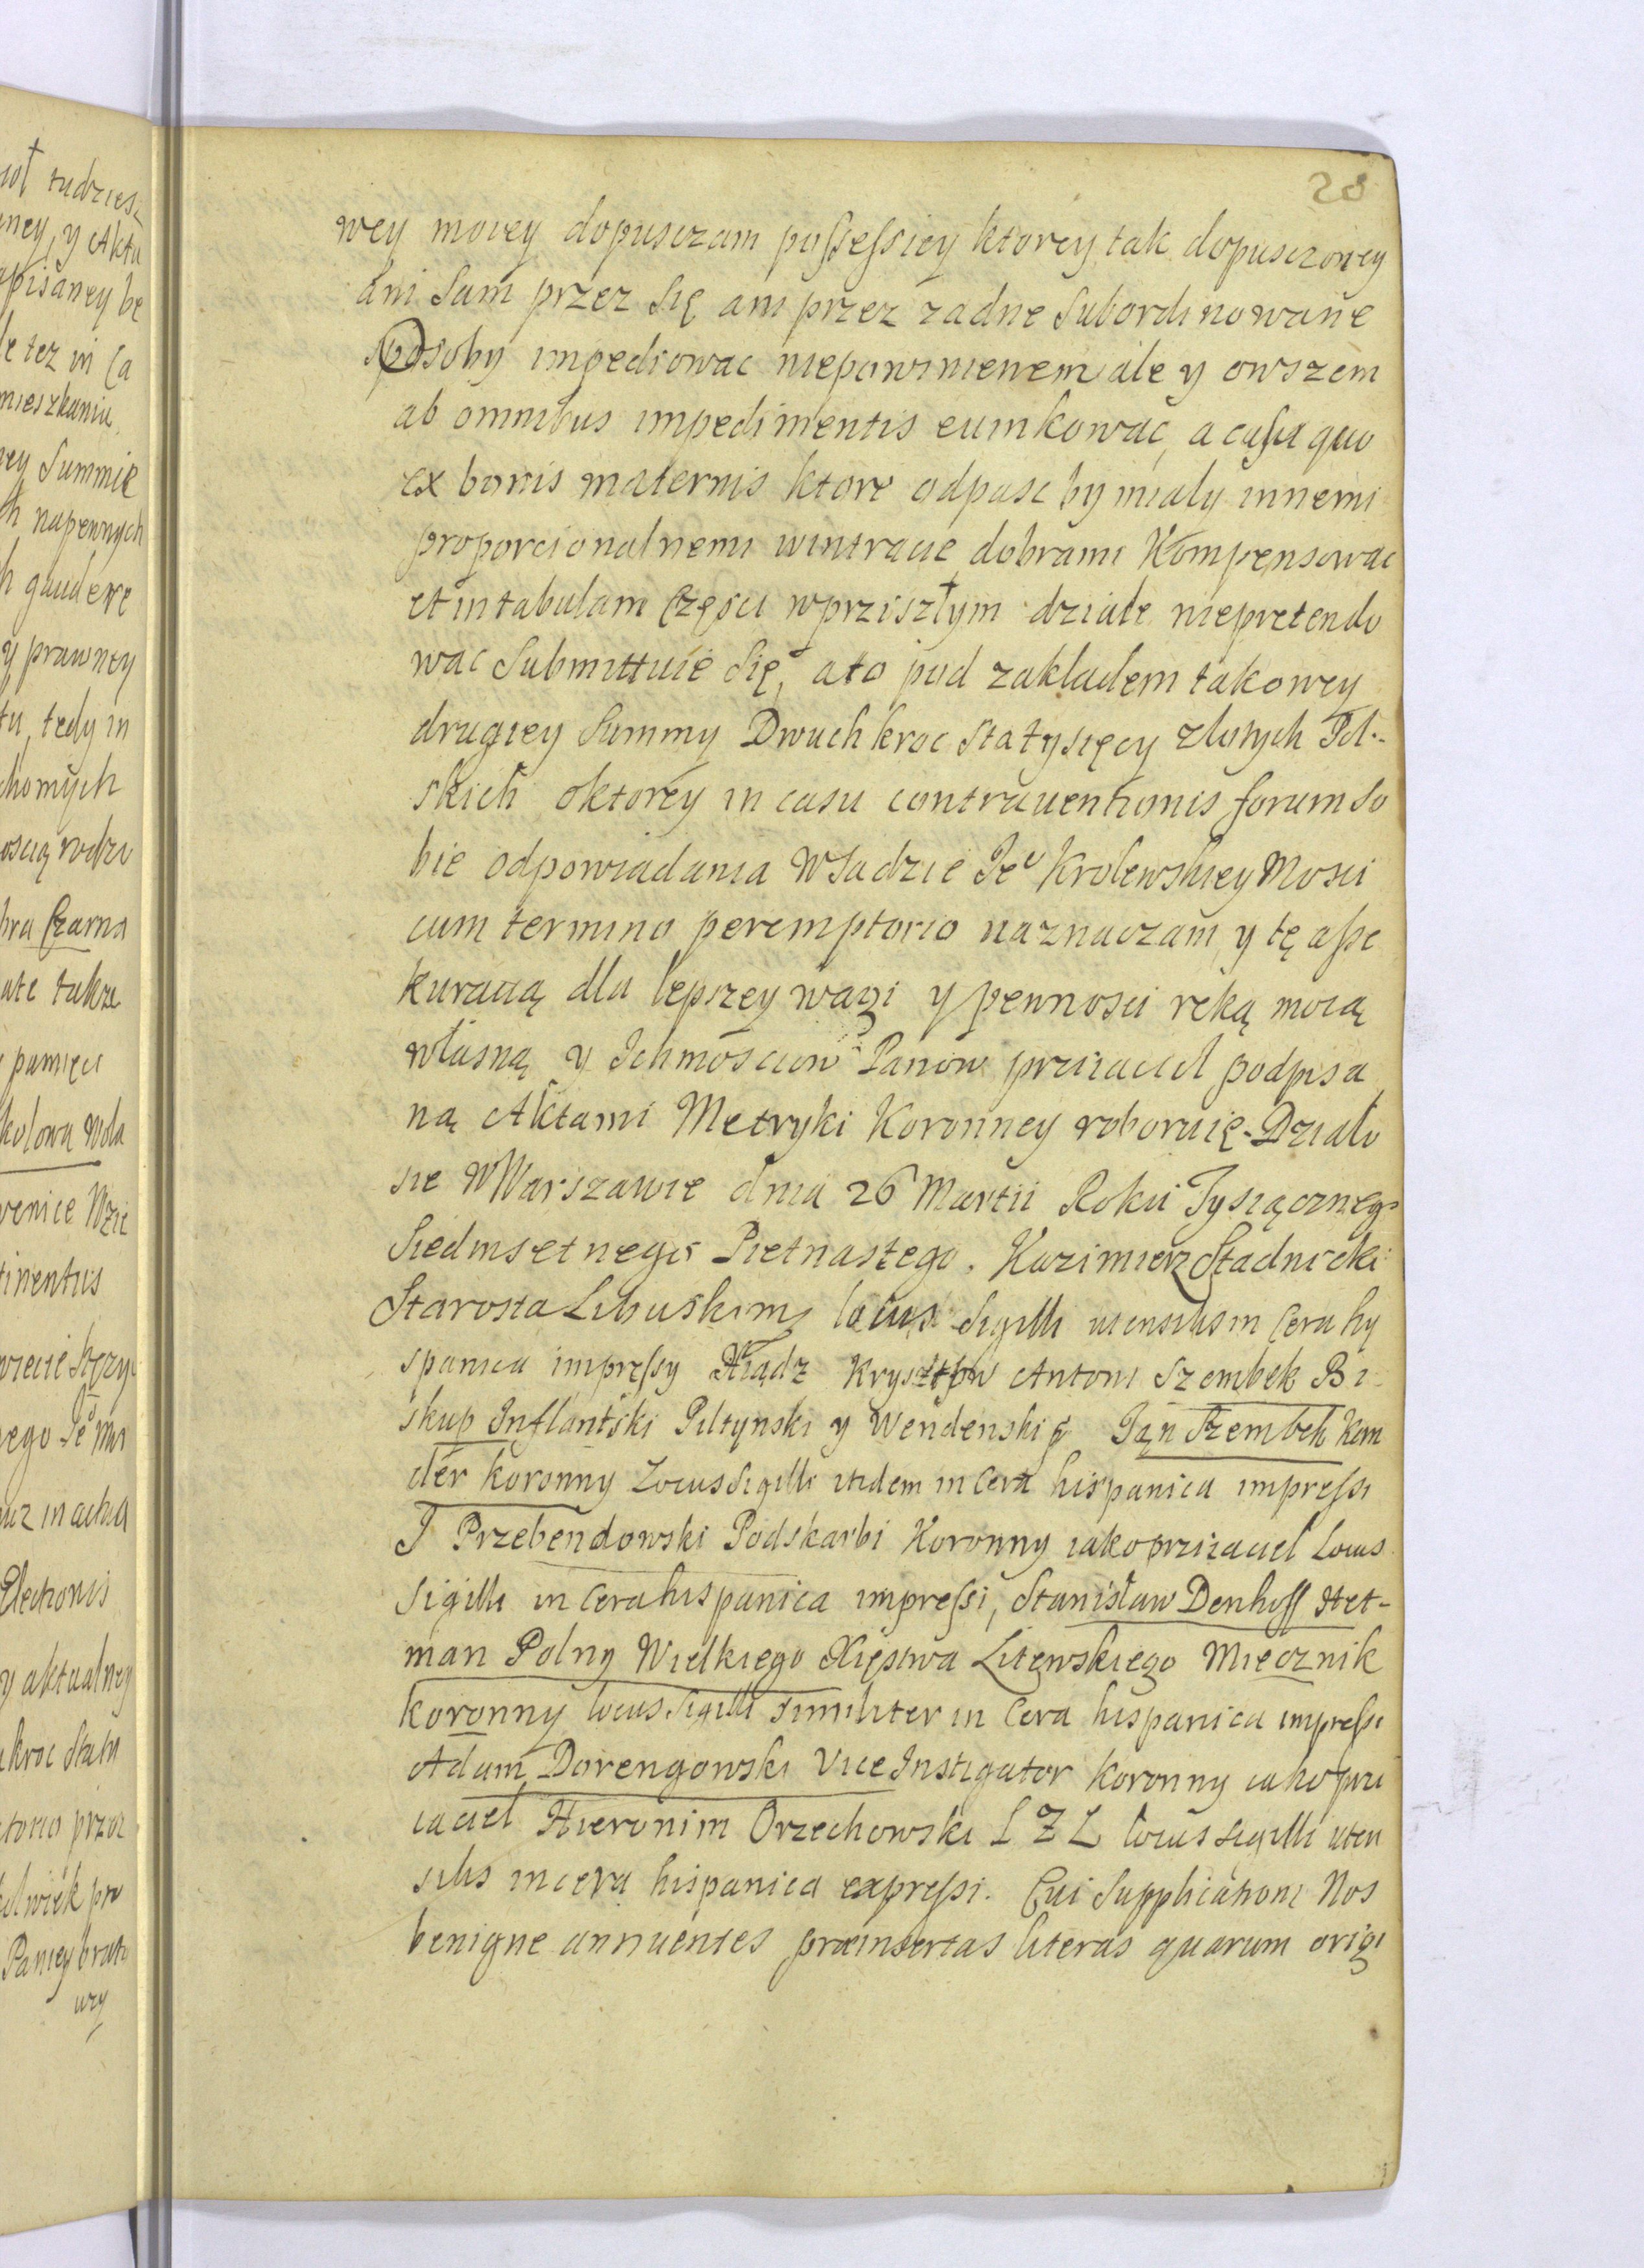 28
wey moiey dopusczam possessiey ktorey tak dopusczoney
ani Sam przez Się ani przez zadne Subordinowane
Osoby impediowac niepowinienem ale y owszem
ab omnibus impedimentis eumkowac, a casu quo
ex bonis maternis ktore odpasc by mialy innemi
proporcionalnemi wintracie dobrami Kompensowac
et in tabulam Częsci wprziszłym dziale niepretendo
wac Submittuie Się, ato pod zakladem takowey
drugiey Summy Dwuch kroc Sta tysięcy złotych Pol-
skich oktorey in casu contrauentionis forum So
bie odpowiadania W Sadzie Je Krolewskiey Mosci
cum termino peremptorio naznaczam, y tę asse
kuracią dla lepszey wagi y pewnosci reką moią
własną y Ichmosciow Panow prziiaciel podpisa
ną Aktami Metryki Koronney roboruię. Działo
sie W Warszawie dnia 26 Martii Roku Tysiącznego
Siedmsetnego Pietnastego. Kazimierz Stadnicki
Starosta Libuski mp locus Sigilli utensilis in Cera hy
spanica impressy Xiądz Krysztow Antoni Szembek Bi
skup Inflantski Piltynski y Wendenski Jan Szembek Kan
clerz koronny Locus Sigilli itidem in Cera hispanica impressi
J Przebendowski Podskarbi Koronny iako prziiaciel Locus
Sigilli in Cera hispanica impressi, Stanisław Denhoff Het-
man Polny Wielkiego Xięstwa Litewskiego Miecznik
koronny locus Sigilli similiter in Cera hispanica impressi
Adam Dorengowski Vice Instigator koronny iako przi
iaciel Hieronim Orzechowski L Z L locus Sigilli uten
silis in cera hispanica expressi. Cui Supplicationi Nos
benigne annuentes præinsertas literas quarum origi